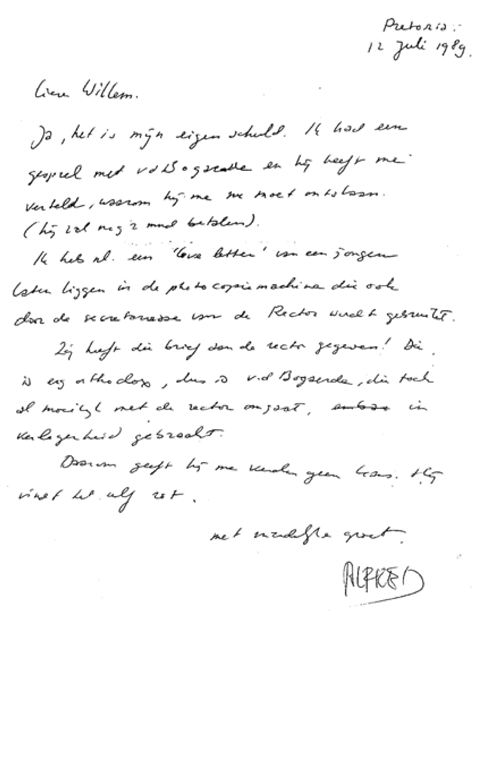 Pretoria.
12 Juli 1989.
Lieve Willem.
Ja, het is mijn eigen schuld. Ik had een
gesprek met vd Bogaerde en hij heeft me
verteld, waarom hij me nu moet ontslaan.
(hij zal nog 2 mnd betalen).
Ik heb nl. een 'love letter' van een jongen
laten liggen in de photocopiemachine die ook
door de secretaresse van de Rector wordt gebruikt.
Zij heeft die brief aan de rector gegeven! Die
is erg orthodox, dus is v.d Bogaerde, die toch
al moeilijk met de rector omgaat, in
verlegenheid gebracht.
Daarom geeft hij me verder geen kans. Hij
vindt het zelf rot.
met vriendelijke groet.
ALFRED